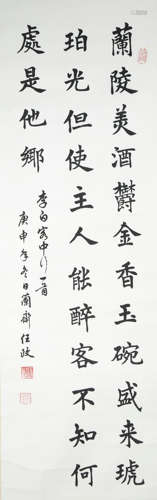 蘭陵美酒欝金香玉碗盛来琥
珀光但使主人能醉客不知何
處是他鄉
李白客中行一首
庚申年冬日蘭齋任政